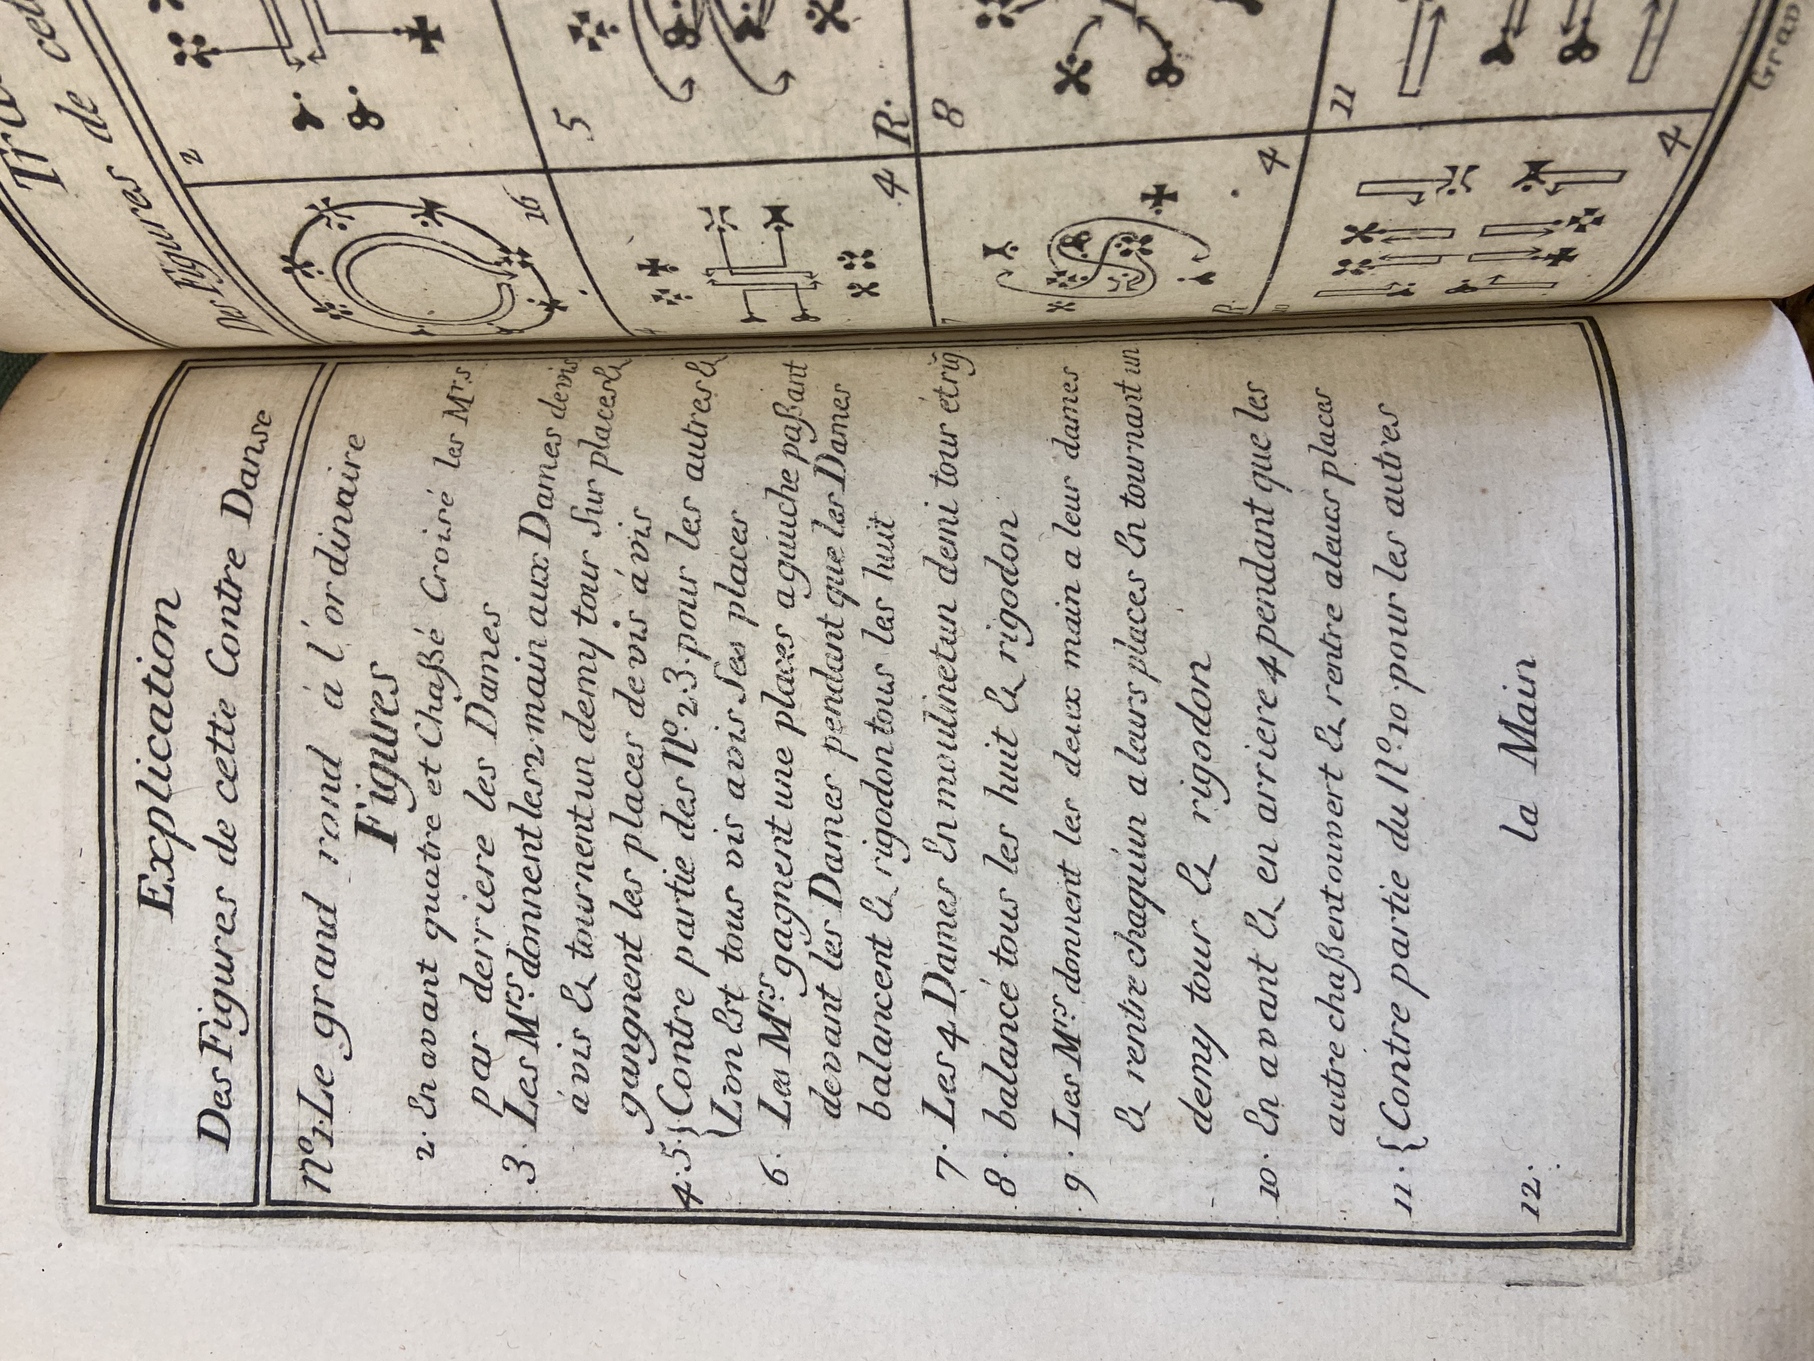 Explication
Des Figures de cette Contre Danse
nº1. Le grand rond á l'ordinaire
Figures
2. En avant quatre et Chaßé Croisé les Mrs
par derriere les Dames
3. Les Mrs. donnent les 2 main aux Dames devis
ávis & tournent un demy tour sur places &
gangnent les places de vis ávis
4.5. {Contre partie des Nº. 2.3. pour les autres &
{L'on Est tous vis avis ses places
6. Les Mrs. gagnent une places aguuche paßant
devant les Dames pendant que les Dames
balancent & rigodon tous les huit
7. Les 4 Dames En moulinet un demi tour et rig
8. balancé tous les huit & rigodon
9. Les Mrs. donnent les deux main a leur dames
& rentre chaquun a leurs places En tournant un
demy tour & rigodon
10. En avant & en arriere 4 pendant que les
autre chaßent ouvert & rentre aleurs places
11. {Contre partie du Nº. 10. pour les autres
12. la Main
de cet
Des Figures
2
16
5
R.
4
8
4
11
4